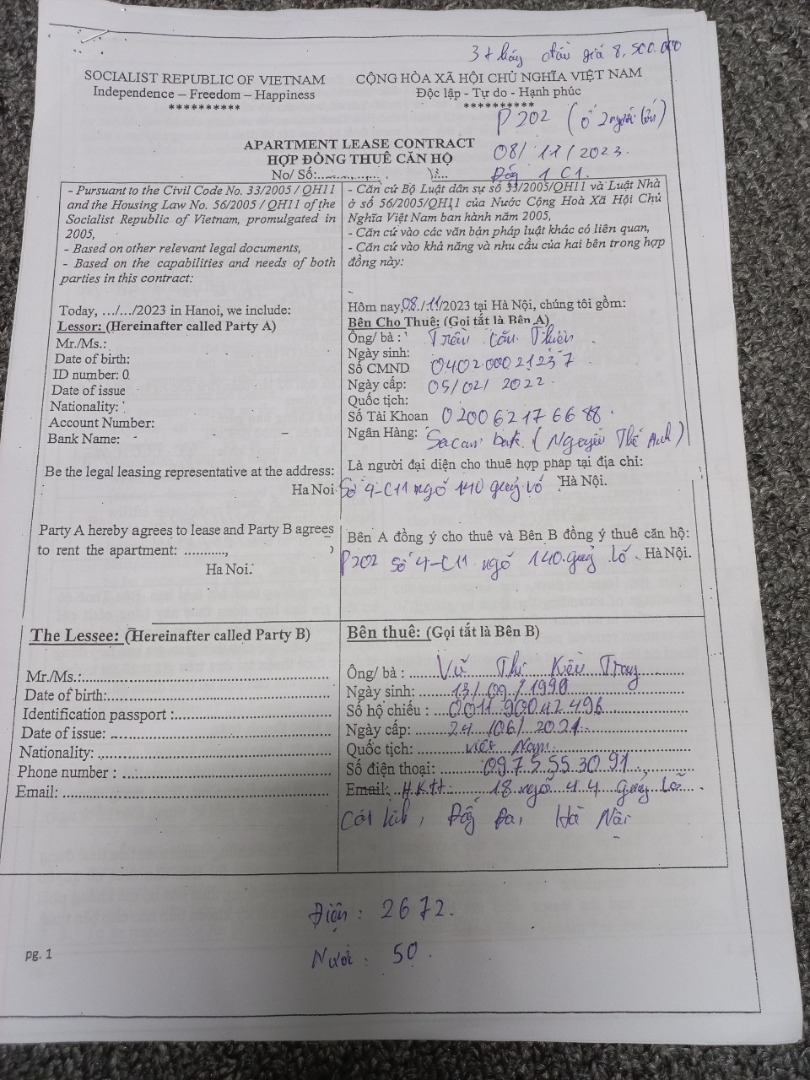 3 tháng đầu giá 8,500.000
SOCIALIST REPUBLIC OF VIETNAM
Independence – Freedom – Happiness
**********
CỘNG HÒA XÃ HỘI CHỦ NGHĨA VIỆT NAM
Độc lập - Tự do - Hạnh phúc
**********
P202 (ở 2 người lớn)
08/11/2023.
APARTMENT LEASE CONTRACT
HỢP ĐỒNG THUÊ CĂN HỘ
No/ Số:
1 C1.
- Pursuant to the Civil Code No. 33/2005 / QH11
and the Housing Law No. 56/2005 / QH11 of the
Socialist Republic of Vietnam, promulgated in
2005,
- Based on other relevant legal documents,
- Based on the capabilities and needs of both
parties in this contract:
- Căn cứ Bộ Luật dân sự số 33/2005/QH11 và Luật Nhà
ở số 56/2005/QH11 của Nước Cộng Hoà Xã Hội Chủ
Nghĩa Việt Nam ban hành năm 2005,
- Căn cứ vào các văn bản pháp luật khác có liên quan,
- Căn cứ vào khả năng và nhu cầu của hai bên trong hợp
đồng này:
Today, .../.../2023 in Hanoi, we include:
Lessor: (Hereinafter called Party A)
Mr./Ms.:
Date of birth:
ID number: 0
Date of issue
Nationality:
Account Number:
Bank Name:
Be the legal leasing representative at the address:
Ha Noi
Party A hereby agrees to lease and Party B agrees
to rent the apartment: ...........,
Ha Noi.
Hôm nay,08./.11/2023 tại Hà Nội, chúng tôi gồm:
Bên Cho Thuê: (Gọi tắt là Bên A)
Ông/ bà : Trần
Ngày sinh:
Số CMND 040200021237
Ngày cấp: 05/02/2022.
Quốc tịch:
Số Tài Khoan 020062176688.
Ngân Hàng: (Nguyễn Thế Anh)
Là người đại diện cho thuê hợp pháp tại địa chỉ:
Số 4-C11 ngõ 140 Hà Nội.
Bên A đồng ý cho thuê và Bên B đồng ý thuê căn hộ:
P202 Số 4-C11 ngõ 140 Hà Nội.
The Lessee: (Hereinafter called Party B)
Mr./Ms.:
Date of birth:
Identification passport :
Date of issue:
Nationality:
Phone number :
Email:
Bên thuê: (Gọi tắt là Bên B)
Ông/ bà : Vũ Thị Kiều Trang
Ngày sinh: 13/09/1990
Số hộ chiếu : 001190042496
Ngày cấp: 24/06/2021.
Quốc tịch: Việt Nam
Số điện thoại: 0975553091
Email: H.K.tt: 18 ngõ 44
Cát Linh, Đống Đa, Hà Nội
Điện : 2672.
Nước : 50.
pg. 1